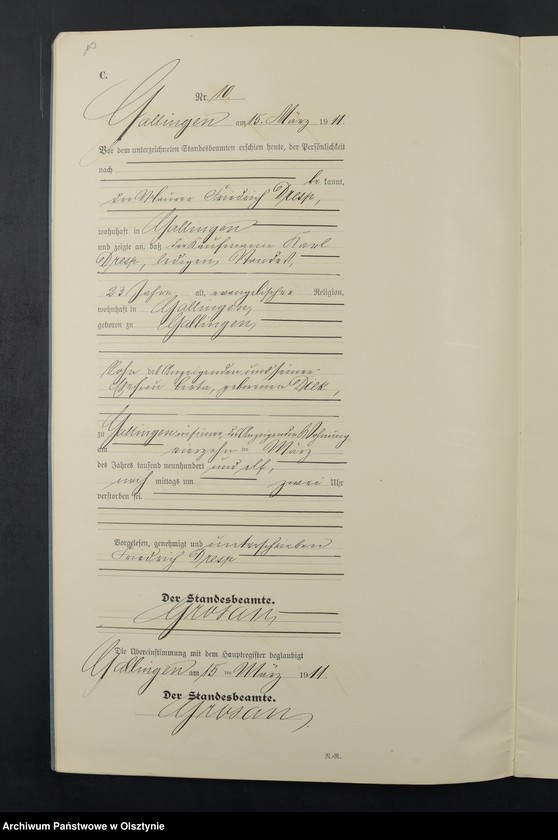 C.
Nr. 10.
Gallingen am 15. März 1911.
Vor dem unterzeichneten Standesbeamten erschien heute, der Persönlichkeit
nach
be kannt,
der Maurer Friedrich Dresp,
wohnhaft in Gallingen
und zeigte an, daß der Kaufmann Karl
Dresp, ledigen Standes,
23 Jahre alt, evangelischer Religion,
wohnhaft in Gallingen,
geboren zu Gallingen,
Sohn des Anzeigenden und seiner
Ehefrau Berta, geborenen Diek,
zu Gallingen in seiner, des Anzeigenden Wohnung
am vierzehn ten März
des Jahres tausend neunhundert und elf,
nach mittags um zwei Uhr
verstorben sei.
Vorgelesen, genehmigt und unterschrieben
Friedrich Dresp
Der Standesbeamte.
Grosan
Die Übereinstimmung mit dem Hauptregister beglaubigt
Gallingen am 15 ten März 1911.
Der Standesbeamte.
Grosan
R.-R.
Archiwum Państwowe w Olsztynie